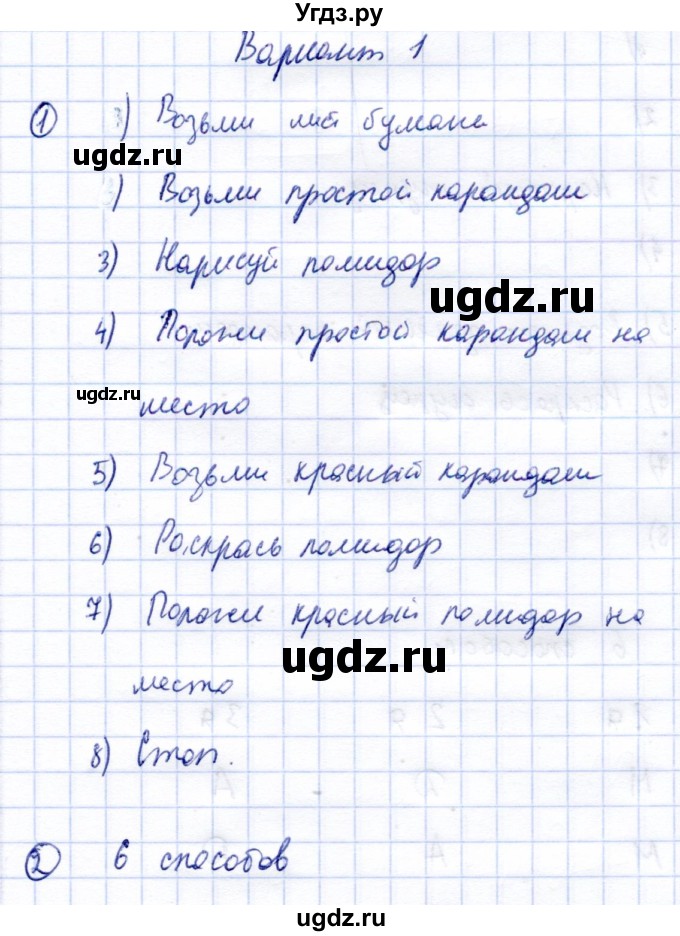 Угдз.ру
Вариант 1
1 1) Возьми лист бумаги
ugdz.ru
2) Возьми простой карандаш
3) Нарисуй помидор
ugdz.ru
4) Положи простой карандаш на
ugdz.ru
место
5) Возьми красный карандаш
6) Раскрась помидор
7) Положи красный помидор на
ugdz.ru
место
8) Стоп.
2 6 способов
ugdz.ru